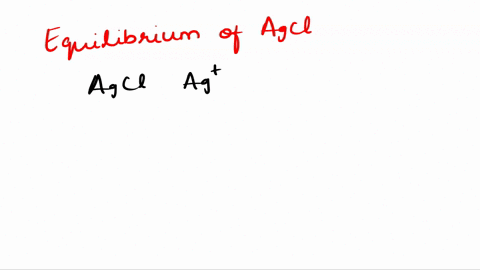 Equilibrium of AgCl
AgCl Ag⁺